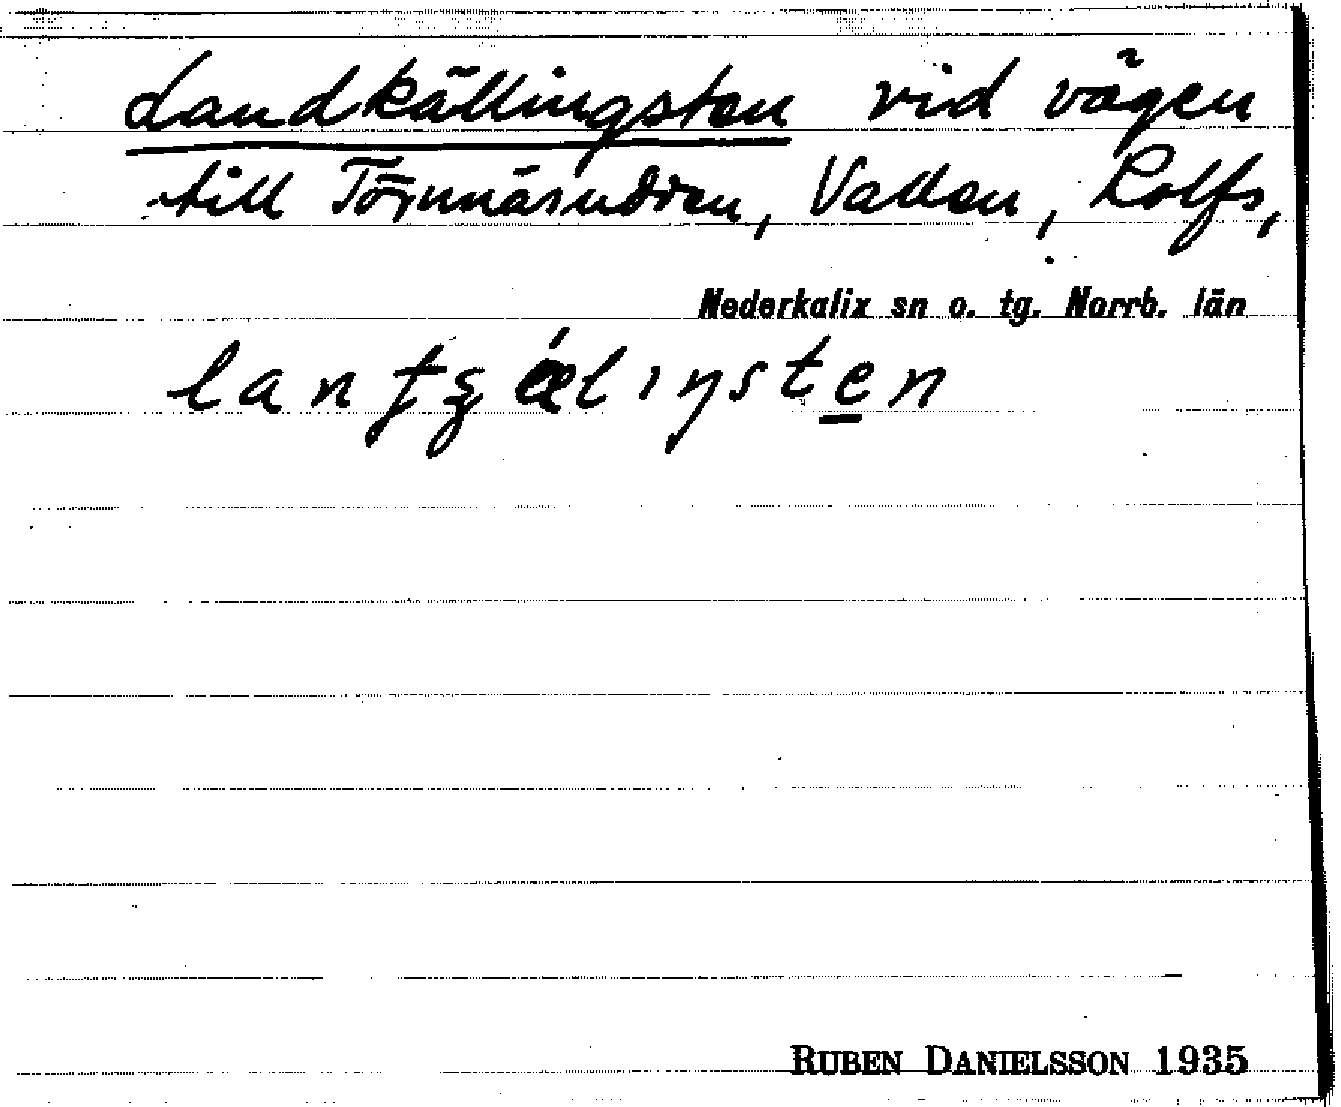 Landkällingsten vid vägen
till Törnnäsudden, Vallen, Rolfs,
Nederkalix sn o. tg. Norrb. län
RUBEN DANIELSSON 1935